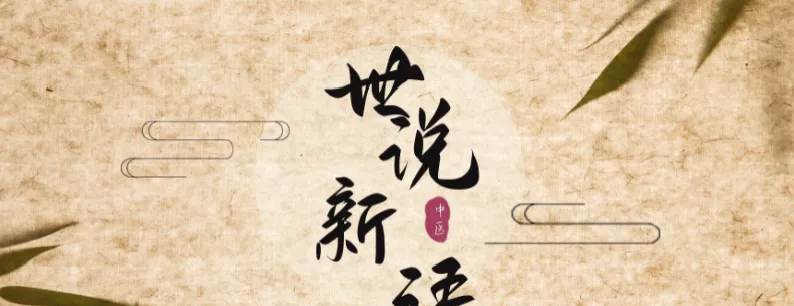 世说
新语
中医